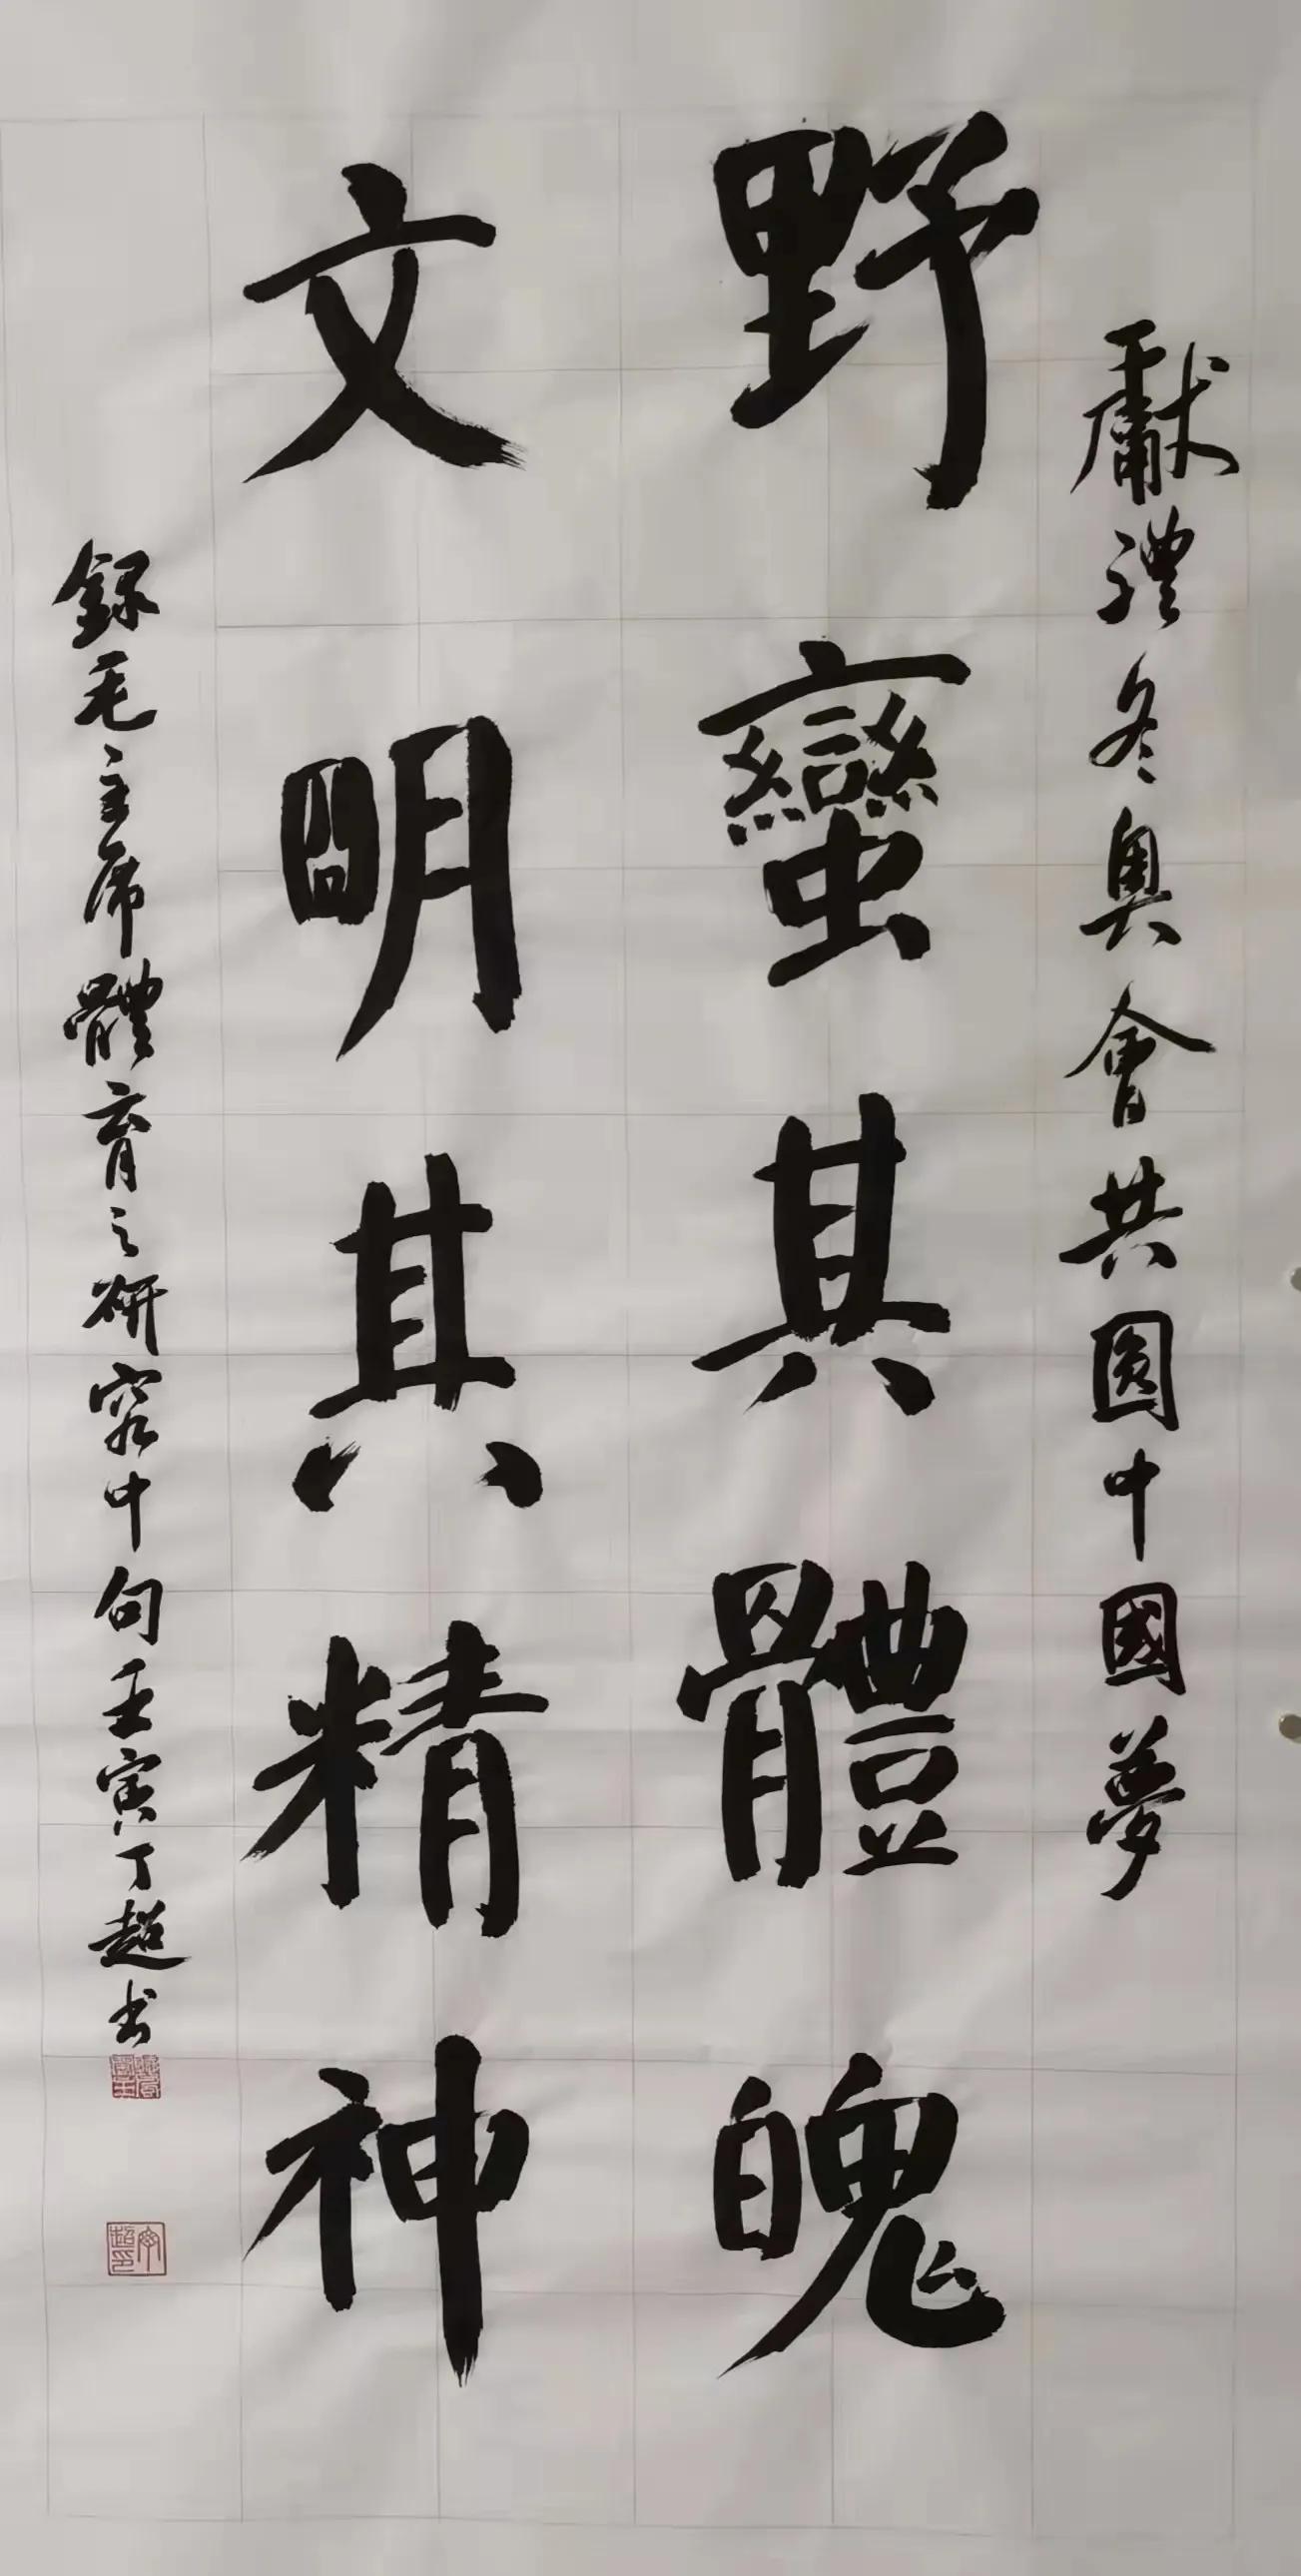 獻禮冬奥會共圆中國夢
野蠻其體魄
文明其精神
録毛主席體育之研究中句壬寅丁超书